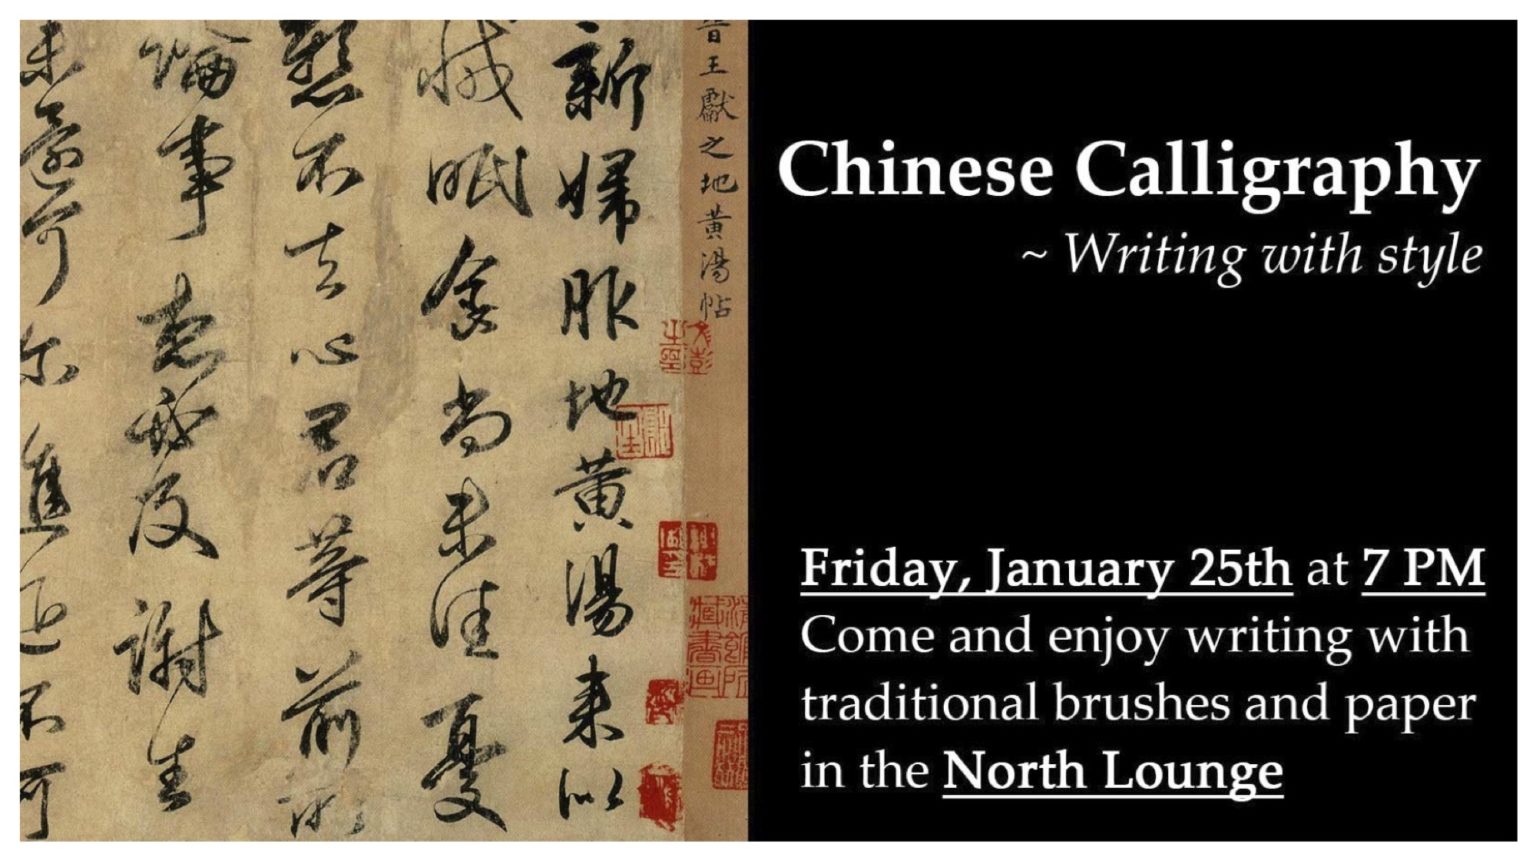 晉王獻之地黃湯帖
新婦服地黃湯來似
減眠食尚未佳憂
懸不去心君等前所
論事想必及謝生
未還可尔進退不可
Chinese Calligraphy
~ Writing with style
Friday, January 25th at 7 PM
Come and enjoy writing with
traditional brushes and paper
in the North Lounge